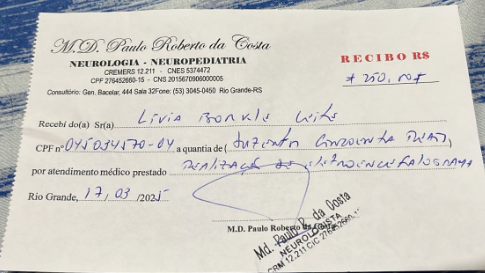 M.D. Paulo Roberto da Costa
NEUROLOGIA - NEUROPEDIATRIA
CREMERS 12.211 - CNES 5374472
CPF 276452660-15 - CNS 201567090600005
Consultório: Gen. Bacelar, 444 Sala 32Fone: (53) 3045-0450 Rio Grande-RS
RECIBO R$
* 250,00 *
Recebi do(a) Sr(a) Lívia
CPF nº 045034570-04, a quantia de ( duzentos cinquenta reais,
por atendimento médico prestado realização de eletroencefalograma
Rio Grande, 17, 03 /2025
M.D. Paulo Roberto da Costa
Md. Paulo R. da Costa
NEUROLOGISTA
CRM 12.211 CIC 276452660